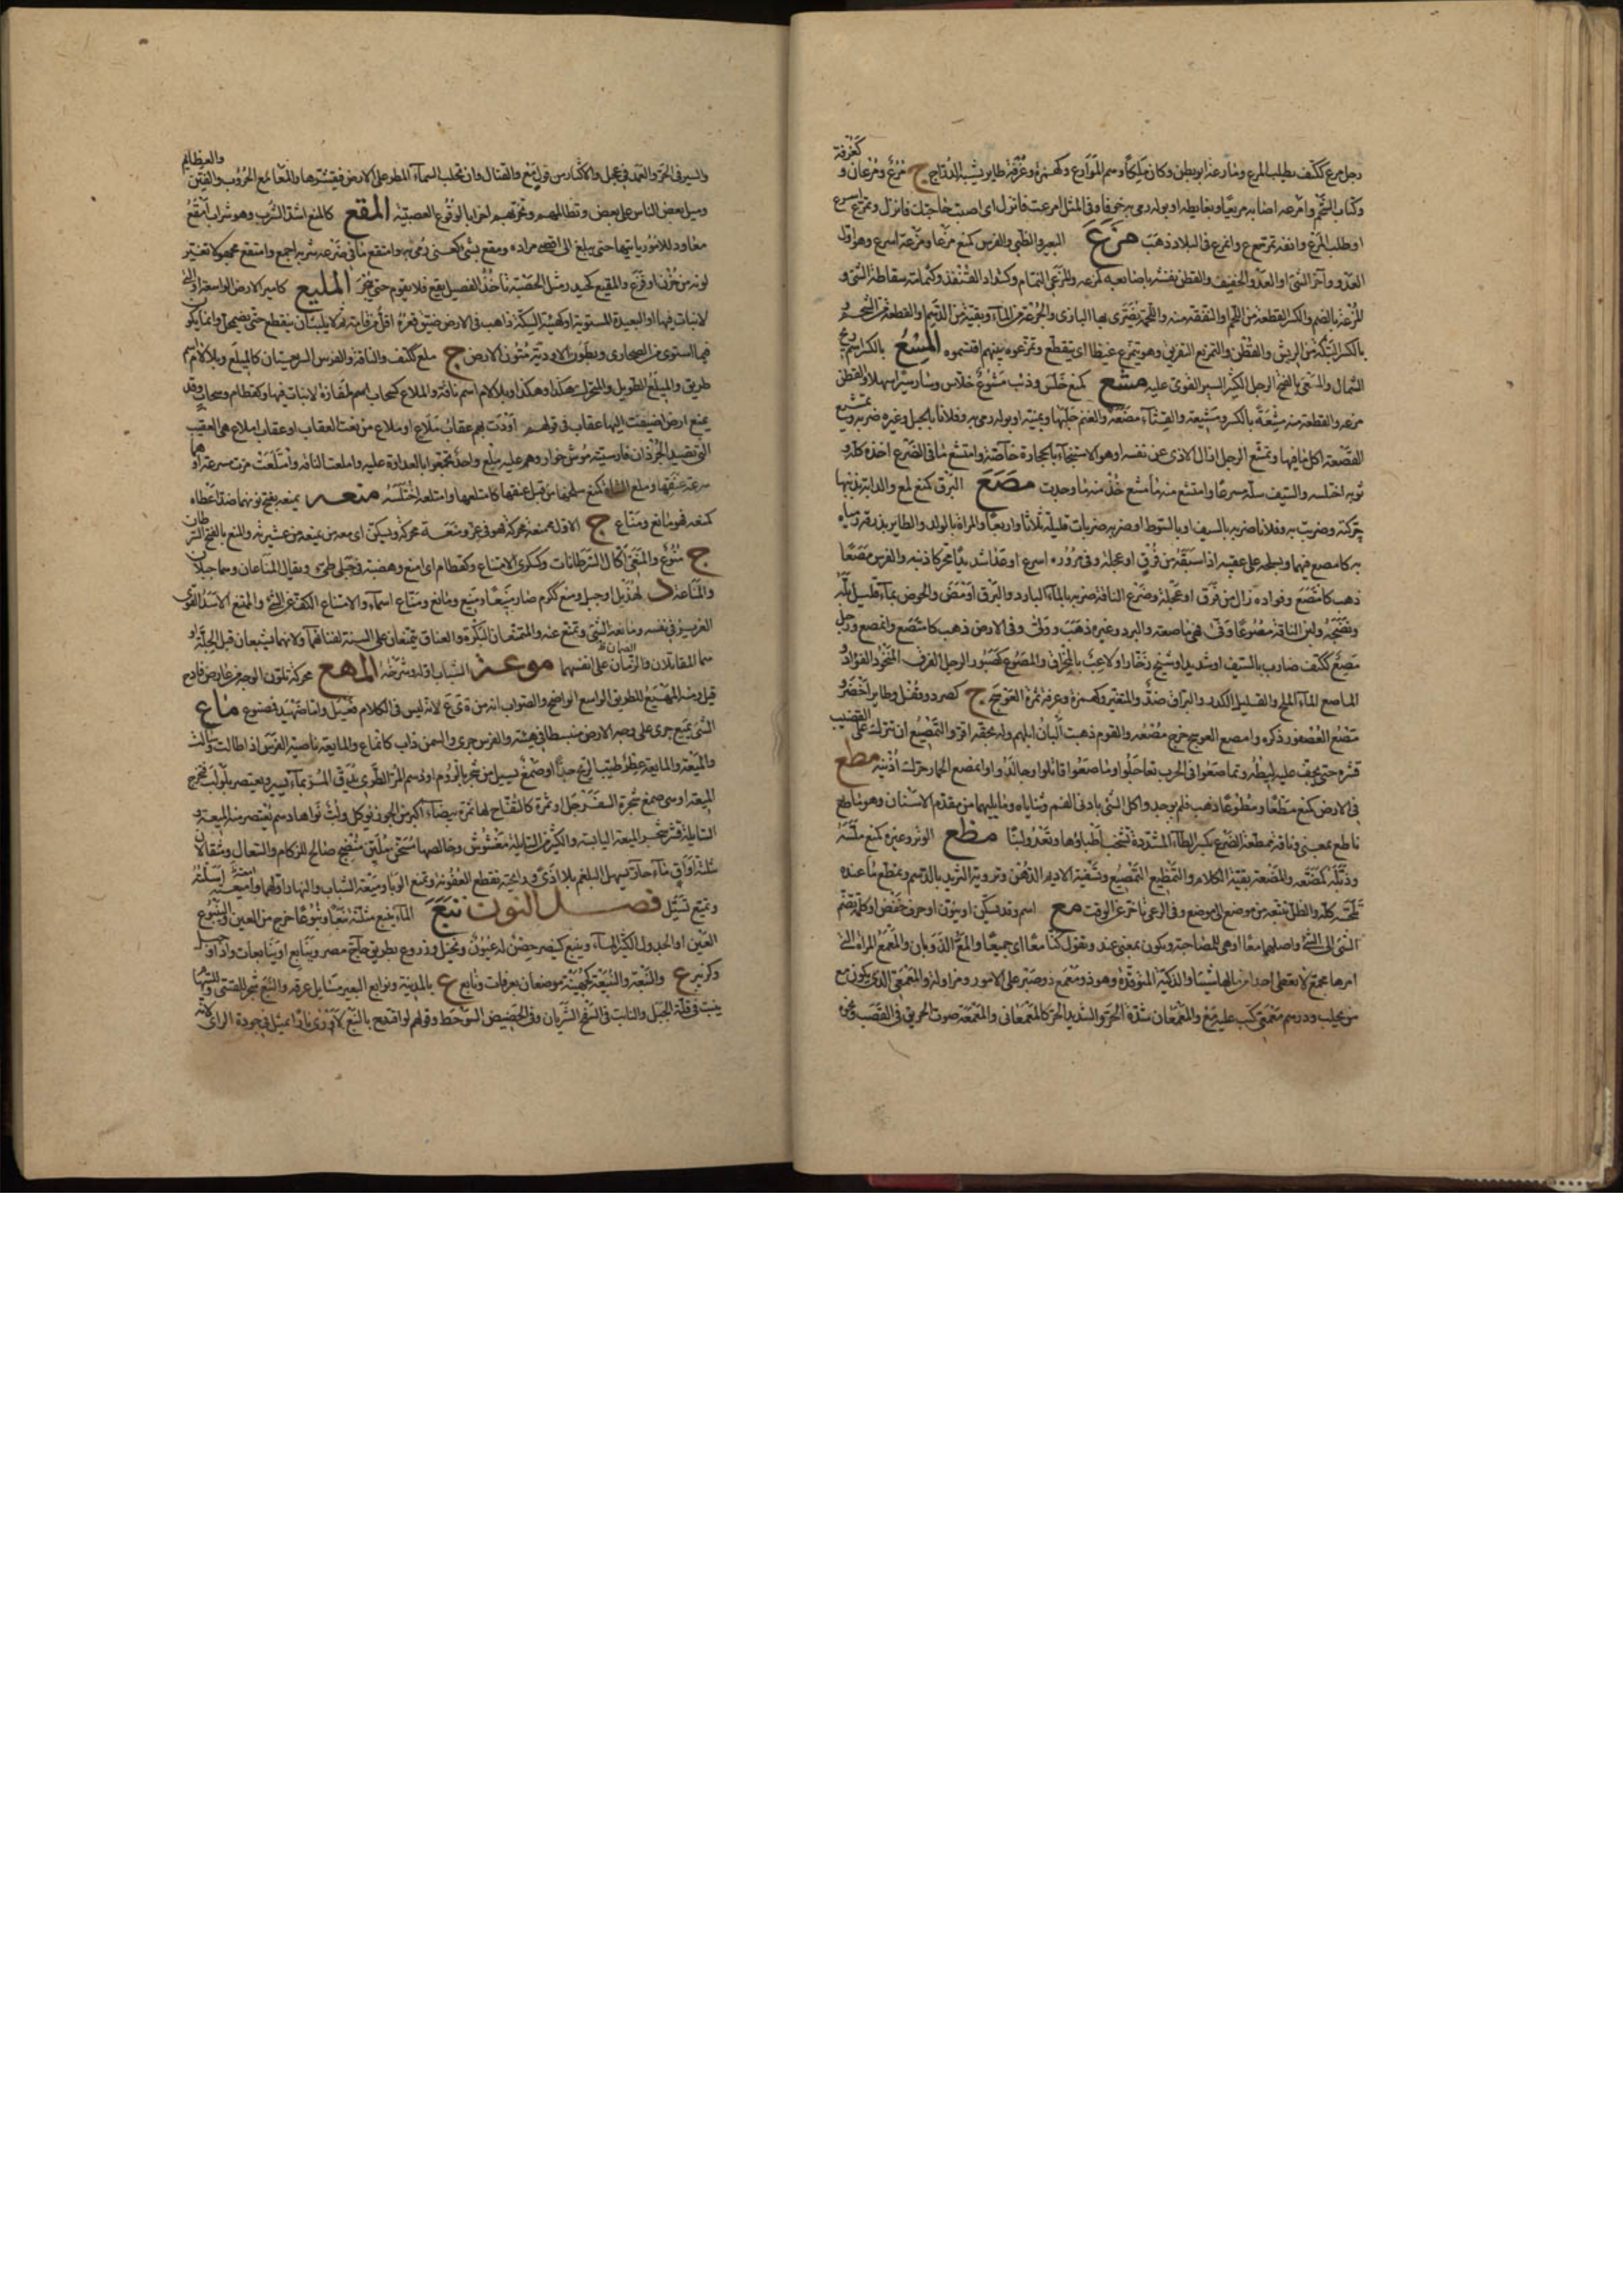 رجل مرع ككتف يطلب المرع ومارعة ابو بطن وكان ملكا وهم الموارع وكهمزة وغرفة طاير يشبه الدراج ج مرع ومرعان و
كغرفة
وكتاب الشحم وامرعه اصابه مريعا وبغايطه او بوله رمى به خوفا وفى المثل امرعت فانزل اى اصبت حاجتك فانزل وتمرع اسرع
او طلب المرع وانفه ترمع وانمرع فى البلاد ذهب مزع البعير والظبى والفرس كمنع مزعا ومزعة اسرع وهو اول
العدو وآخر المشى او العدو الخفيف والقطن نفشه باصابعه كمزعه والمزعى النمام وكشداد القنفذ وكثمامة سقاطة الشئ و
المزعة بالضم والكسر القطعة من اللحم او النتفة منه واللحمة يضرى بها البازى والجرعة من الماء وبقية من الدسم او القطعة من الشحم و
بالكسر البتكة من الريش والقطن والتمزيع التفريق وهو يتمزع غيظا اى يتقطع وتمزعوه بينهم اقتسموه المسع بالكسر اسم ريح
الشمال والمسعى بالفتح الرجل الكثير السير القوى عليه مشع كمنع خلس وذئب مشوع خلاس وسار سيرا سهلا والقطن
مزعه والقطعة منه مشعة بالكسر ومشيعة والقثاء مضغه والغنم حلبها وبمنيه او بوله رمى به وفلانا بالحبل وغيره ضربه وتمشيع
القصعة اكل ما فيها وتمشع الرجل ازال الاذى عن نفسه او هو الاستنجاء بالحجارة خاصة وامتشع ما فى الضرع اخذه كله و
ثوبه اختلسه والسيف سله مسرعا وامتشع منه ما مشع خذ منه ما وجدت مصع البرق كمنع لمع والدابة بذنبها
حركته وضربت به وفلانا ضربه بالسيف او بالسوط او ضربه ضربات قليلة ثلاثا واربعا والمراة بالولد والطاير بذرقه رمياه
به كامصع فيهما وبسلحه على عقبيه اذا سبقه من فرق او عجلة وفى مروره اسرع او عدا شديدا محركا ذنبه والفرس مصعا
ذهب كامتصع وفواده زال من فرق او عجلة وضرع الناقة ضربه بالماء البارد والبرق اومض والحوض بماء قليل بله
ونضحه ولبن الناقة مصوعا ولى فهى ماصعة والبرد وغيره ذهب وولى وفى الارض ذهب كامتصع وانمصع ورجل
مصع ككتف ضارب بالسيف او شديد او شيخ زحار او لاعب بالمخراق والمصوع كصبور الرجل الفرق المنخوب الفؤاد و
الماصع الماء الملح والقليل الكدر والبراق ضد والمتغير وكهمزة وغرفة ثمرة العوسج ج كصرد وقفل وطاير اخضر و
مصع العصفور ذكره وامصع العوسج خرج مصعه والقوم ذهبت البان ابلهم وله بحقه اقر والتمصيع ان تترك على القضيب
قشره حتى يجف عليه ليطه وتماصعوا فى الحرب تعالجوا وماصعوا قاتلوا وجالدوا وانمصع الحمار حرك اذنيه مطع
فى الارض كمنع مطعا ومطوعا ذهب فلم يوجد واكل الشئ بادنى الفم وثناياه وما يليها من مقدم الاسنان وهو ماطع
ناطع بمعنى وناقة ممطعة الضرع بكسر الطاء المشددة تشخب اطباؤها وتغذو لبنا مظع الوتر وغيره كمنع ملسه
وذبله كمظعه والمظعة بقية الكلام والتمظيع التمصيع وتسقية الاديم الدهن وتروية الثريد بالدسم وتمظع ما عنده
تلحسه كله والظل تتبعه من موضع الى موضع وفى الرعى تاخر عن الوقت مع اسم وقد يسكن او ينون او حرف خفض او كلمة تضم
الشئ الى الشئ واصلها معا او هى للمصاحبة وتكون بمعنى عند وتقول كنا معا اى جميعا والمع الذوبان والمعمع المراة التى
امرها مجمع لا تعطى احدا من مالها شيئا والذكية المتوقدة وهو ذو معمع ذو صبر على الامور ومزاولة والمعمعى الذى يكون مع
من غلب ودرهم معمعى كتب عليه مع مع والمعمعان شدة الحر والشديد الحر كالمعمعانى والمعمعة صوت الحريق فى القصب ونحوه
والسير فى الحر والعمل فى عجل والاكثار من قول مع والقتال وان تحلب السماء المطر على الارض فيقشرها والمعامع الحروب والفتن
والعظايم
وميل بعض الناس على بعض وتظالمهم وتحزبهم احزابا لوقوع العصبية المقع كالمنع اشد الشرب وهو شراب بامقع
معاود للامور ياتيها حتى يبلغ الى اقصى مراده ومقع بشئ كعنى رمى به وامتقع ما فى ضرعه شربه اجمع وامتقع مجهولا تغير
لونه من حزن او فزع والميقع كحيدر مثل الحصبة تاخذ الفصيل يقع فلا يقوم حتى ينحر المليع كامير الارض الواسعة او التى
لا نبات فيها او البعيدة المستوية او كهيئة السكة ذاهب فى الارض ضيق قعره اقل من قامة ثم لا يلبث ان ينقطع حتى يضمحل وانما يكون
فيما استوى من الصحارى وبطون الاودية ومتون الارض ج ملع ككتف والناقة والفرس السريعتان كالميلع وبلا لام اسم
طريق والميلع الطويل والمتحرك هكذا وهكذا وبلا لام اسم ناقة والملاع كسحاب اسم المفازة لا نبات فيها وكقطام وسحاب وقد
يمنع ارض اضيفت اليها عقاب فى قولهم اودت بهم عقاب ملاع او ملاع من نعت العقاب او عقاب ملاع هى العقيب
التى تصيد الجرذان فارسيته موش خوار وهم عليه ملع واحد تجمعوا بالعداوة عليه واملعت الناقة وامتلعت مرت مسرعة او
سرعة عنقها وملع الشاة كمنع سلخها من قبل عنقها كامتلعها وامتلعه اختلسه منعه يمنعه بفتح نونهما ضد اعطاه
كمنعه فهو مانع ومناع ج الاول منعة محركة وهو فى عز ومنعة محركة ويسكن اى معه من يمنعه من عشيرته والمنع بالفتح السرطان
ج منوع والمنعى اكال السرطانات وكسكرى الامتناع وكقطام اى امنع وهضبة فى جبلى طى ويقال المناعان وهما جبلان
والمناعة د لهذيل او جبل ومنع ككرم صار منيعا ومنيع ومانع ومناع اسماء والامتناع الكف عن الشئ والممتنع الاسد القوى
العزيز فى نفسه ومانعه الشئ وتمنع عنه والممتنعتان البكرة والعناق يمتنعان على السنة لفتائهما ولانهما يشبعان قبل الجلة او
هما المقاتلتان الزمان على انفسهما موعة الشباب اوله وشرخه المهع محركة تلون الوجه من عارض فادح
قيل ومنه المهيع للطريق الواسع الواضح والصواب انه من ه ى ع لانه ليس فى الكلام فعيل واما ضهيد فمصنوع ماع
الشئ يميع جرى على وجه الارض منبسطا فى هينة والفرس جرى والسمن ذاب كانماع والمايعة ناصية الفرس اذا طالت وسالت
والميعة والمايعة عطر طيب الريح جدا او صمغ يسيل من شجر بالروم او دسم المر الطرى يدق المر بماء يسير ويعتصر بلولب فتخرج
الميعة او هى صمغ شجرة السفرجل او شجرة كالتفاح لها ثمرة بيضاء اكبر من الجوز توكل ولب نواها دسم يعتصر منه الميعة و
السايلة وقشر الشجر الميعة اليابسة والكثير من السايلة مغشوش وخالصها مسخن ملين منضج صالح للزكام والسعال ومثقالان
بثلث اواق ماء حار يسهل البلغم بلا اذى ورايحته تقطع العفونة وتمنع الوبا وميعة الشباب والنهار اولهما وامتعته اسلته
وتميع تسيل فصل النون نبع الماء ينبع مثلثة نبعا ونبوعا خرج من العين والينبوع
العين او الجدول الكثير الماء وينبع كينصر حصن له عيون ونخيل وزروع بطريق حاج مصر وينابع او ينابعات واد او
وكزبير ع والنبعة والنبيعة كجهينة موضعان بعرفات ونابع ع بالمدينة ونوابع البعير مسايل عرقه والنبع شجر للقسى وللسهام
ينبت فى قلة الجبل والنابت فى السفح الشريان وفى الحضيض الشوحط وقولهم لو اقتدح بالنبع لاورى نارا مثل فى جودة الراى لانه